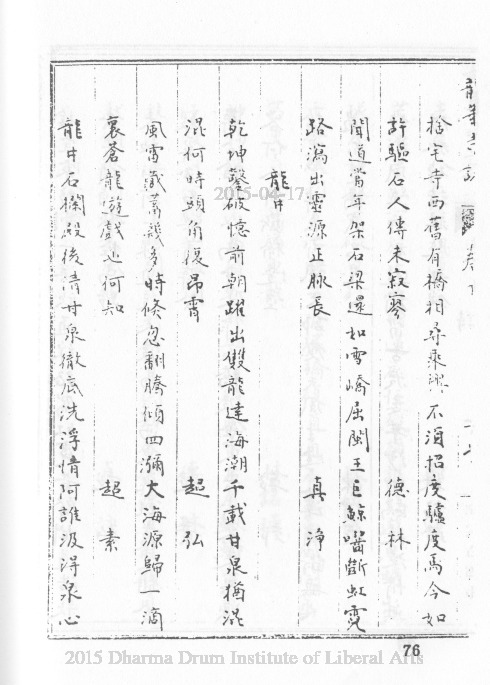 捨宅寺西舊有橋相尋乘興不須招度驢度馬今如
許驅石人傳未寂寥 德林
聞道當年架石梁還如雪嶠屈閩王巨鯨嚙斷虹霓
路瀉出靈源正脉長 真淨
龍井
乾坤鑿破憶前朝躍出雙龍達海潮千載甘泉猶混
混何時頭角復昂霄 超弘
風雷蓄幾多時倏忽翻騰傾四瀰大海源歸一滴
裏蒼龍遊戲也何知 超素
龍井石欄殿後清甘泉徹底洗浮情阿誰汲得泉心
76
2015-04-17
2015 Dharma Drum Institute of Liberal Arts